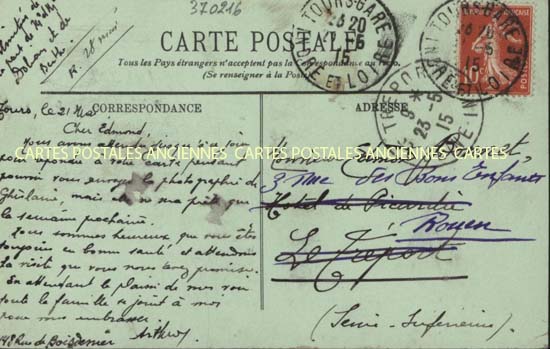 370216
CARTE POSTALE
Tous les Pays étrangers n'acceptent pas la Correspondance au recto
(Se renseigner à la Poste)
CORRESPONDANCE
ADRESSE
R. 28 mai
TOURS-GARE
INDRE ET LOIRE
20
5
15
TOURS-GARE
INDRE ET LOIRE
5
15
LE TREPORT
9 *
23 -5
15
10
Tours, le 21 Mai
Cher Edmond,
CARTES POSTALES ANCIENNES CARTES POSTALES ANCIENNES CARTES POSTALES ANCIENNES
pouvoir vous envoyer la photographie de
Ghislaine, mais elle ne sera prête que
la semaine prochaine.
Nous sommes heureux que vous êtes
toujours en bonne santé et attendons
la visite que vous nous avez promise.
En attendant le plaisir de vous voir
toute la famille se joint à moi
pour vous embrasser.
Arthur
148 Rue de Boisdenier
3 rue des Bons Enfants
Hotel de Picardie
Rouen
Le Tréport
(Seine-Inférieure)